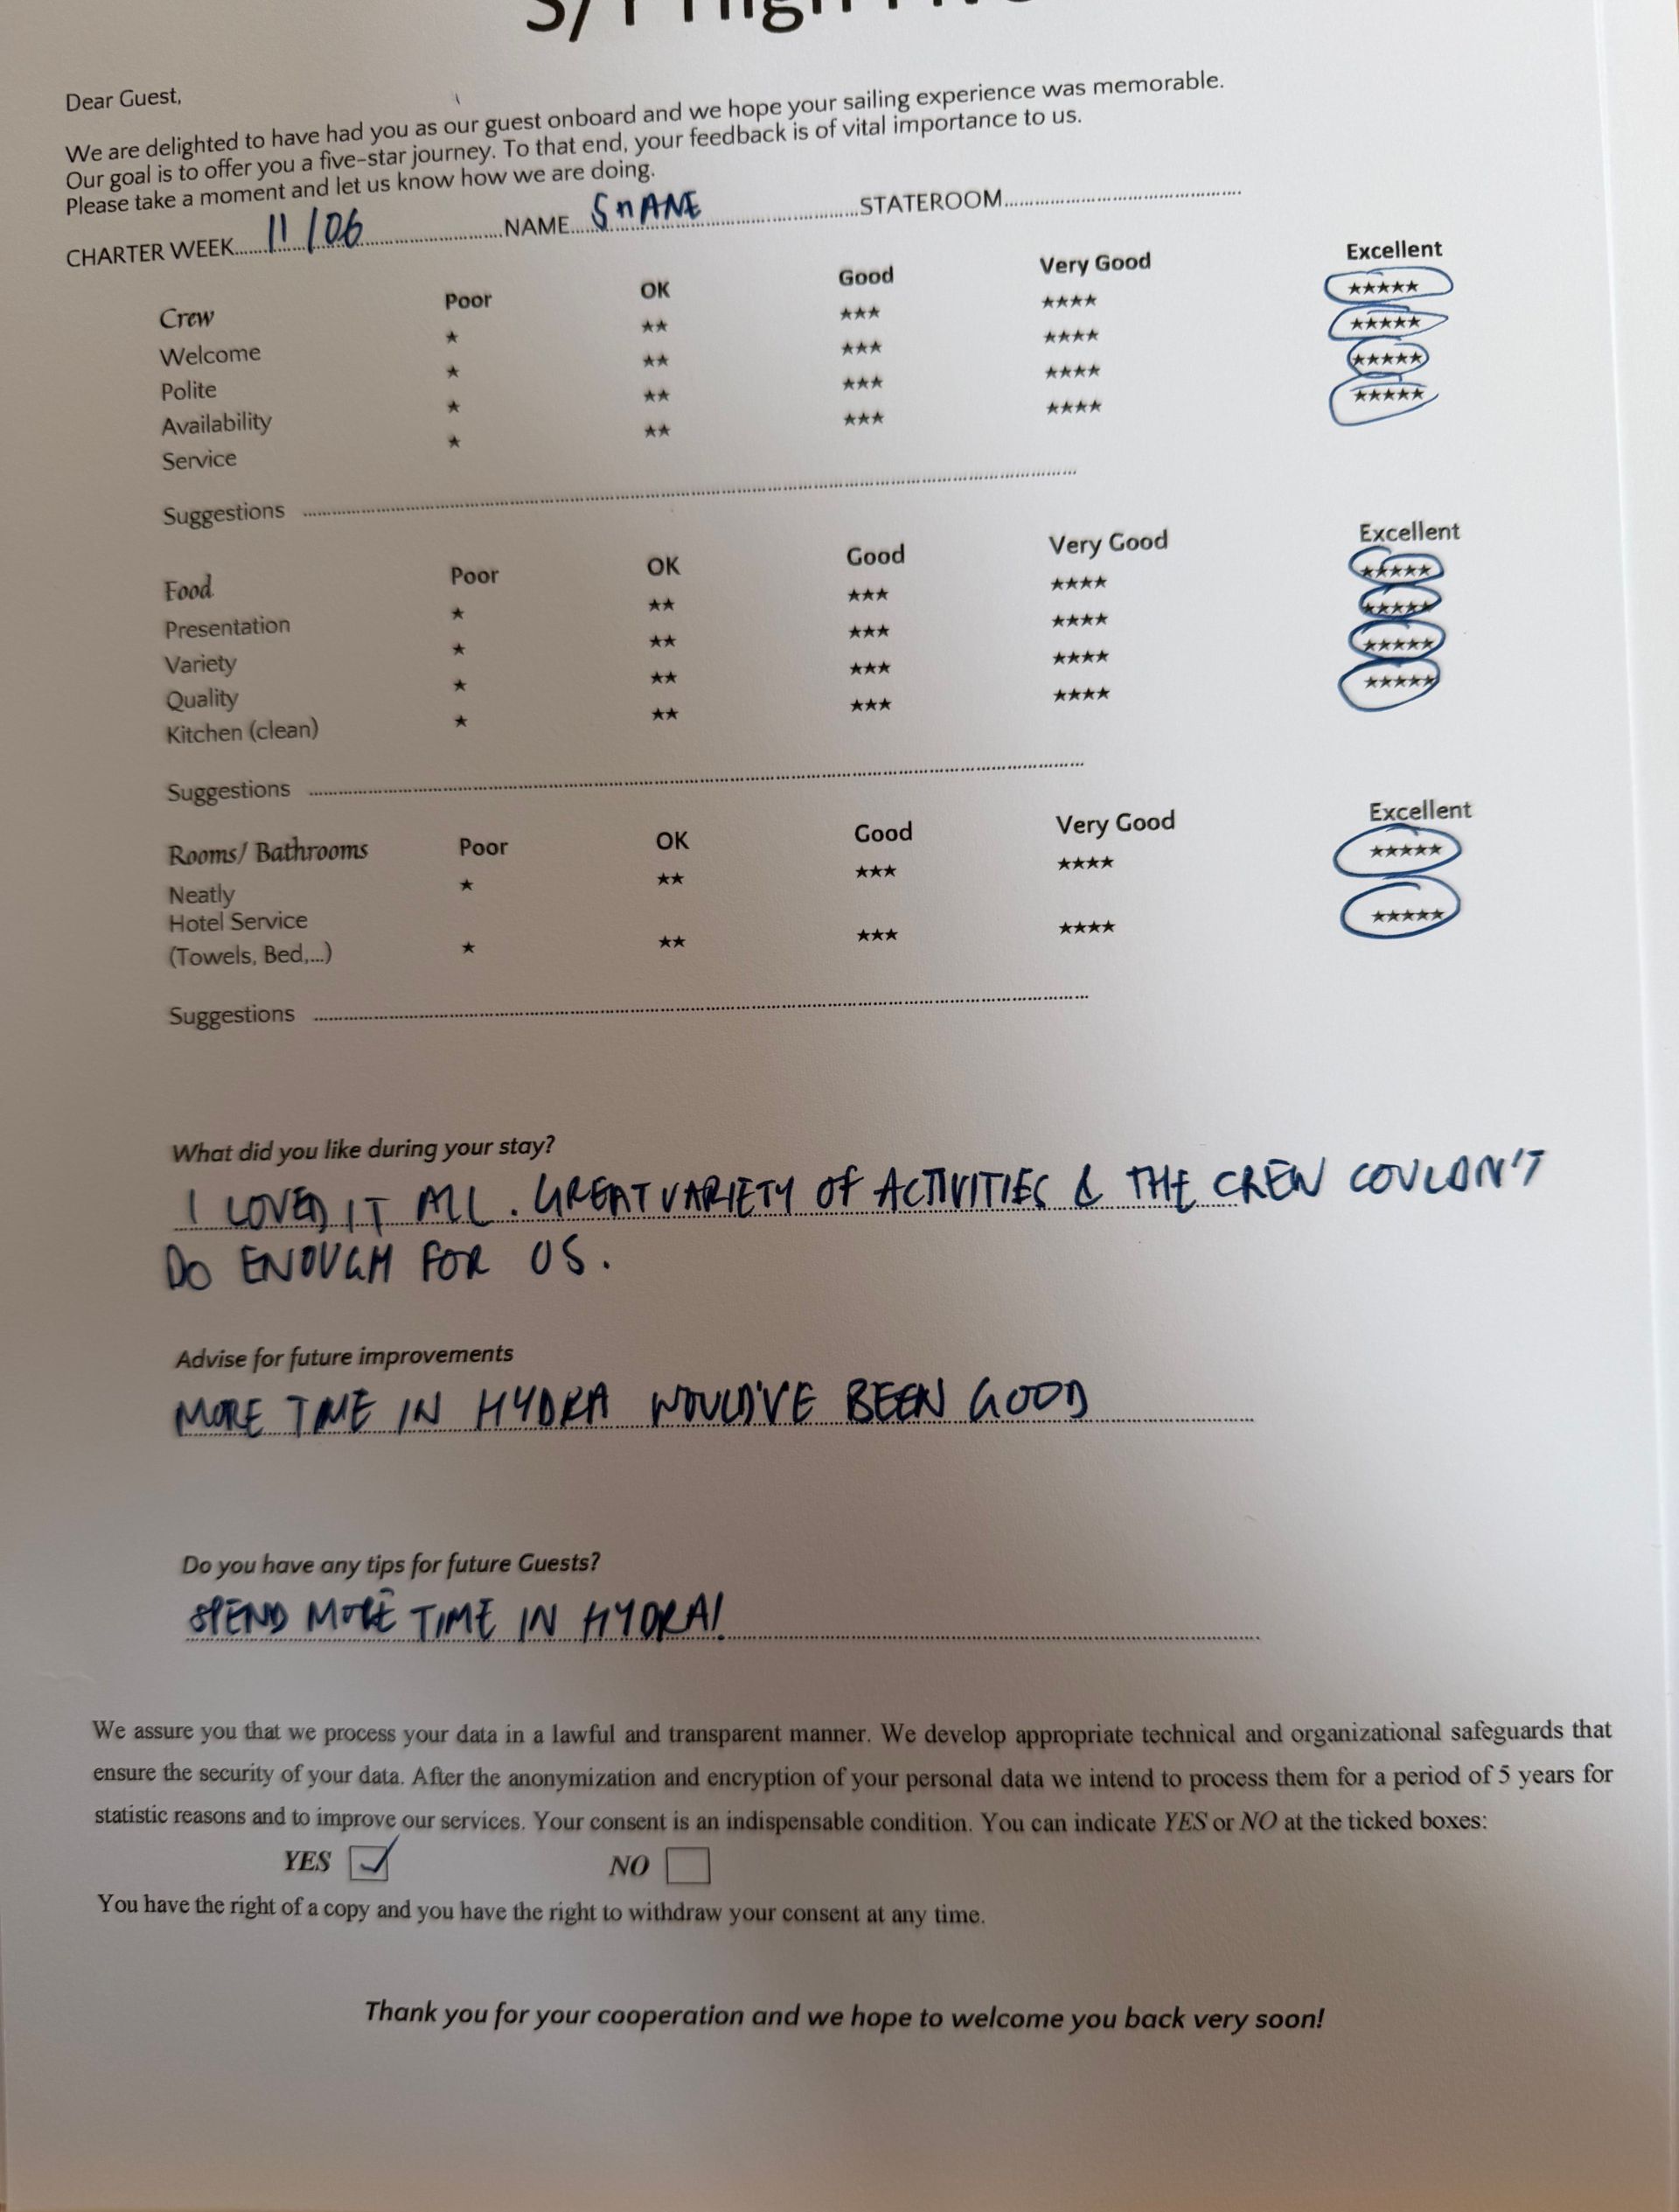 S/Y High
Dear Guest,
We are delighted to have had you as our guest onboard and we hope your sailing experience was memorable.
Our goal is to offer you a five-star journey. To that end, your feedback is of vital importance to us.
Please take a moment and let us know how we are doing.
CHARTER WEEK 11/06 NAME SHANE STATEROOM
Crew Poor OK Good Very Good Excellent
Welcome ★ ★★ ★★★ ★★★★ ★★★★★
Polite ★ ★★ ★★★ ★★★★ ★★★★★
Availability ★ ★★ ★★★ ★★★★ ★★★★★
Service ★ ★★ ★★★ ★★★★ ★★★★★
Suggestions
Food Poor OK Good Very Good Excellent
Presentation ★ ★★ ★★★ ★★★★ ★★★★★
Variety ★ ★★ ★★★ ★★★★ ★★★★★
Quality ★ ★★ ★★★ ★★★★ ★★★★★
Kitchen (clean) ★ ★★ ★★★ ★★★★ ★★★★★
Suggestions
Rooms/ Bathrooms Poor OK Good Very Good Excellent
Neatly ★ ★★ ★★★ ★★★★ ★★★★★
Hotel Service
(Towels, Bed,...) ★ ★★ ★★★ ★★★★ ★★★★★
Suggestions
What did you like during your stay?
I LOVED IT ALL. GREAT VARIETY OF ACTIVITIES & THE CREW COULDN'T
DO ENOUGH FOR US.
Advise for future improvements
MORE TIME IN HYDRA WOULD'VE BEEN GOOD
Do you have any tips for future Guests?
SPEND MORE TIME IN HYDRA!
We assure you that we process your data in a lawful and transparent manner. We develop appropriate technical and organizational safeguards that
ensure the security of your data. After the anonymization and encryption of your personal data we intend to process them for a period of 5 years for
statistic reasons and to improve our services. Your consent is an indispensable condition. You can indicate YES or NO at the ticked boxes:
YES NO
You have the right of a copy and you have the right to withdraw your consent at any time.
Thank you for your cooperation and we hope to welcome you back very soon!